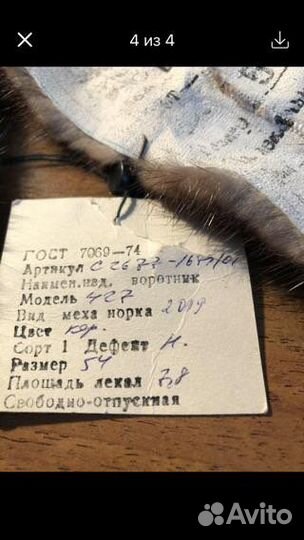 4 из 4
ГОСТ 7069—74
Артикул С 2677-
Наимен.изд. воротник
Модель 427
Вид меха норка
Цвет кор.
Сорт 1 Дефект Н.
Размер 54
Площадь лекал 7,8
Свободно-отпускная
Avito